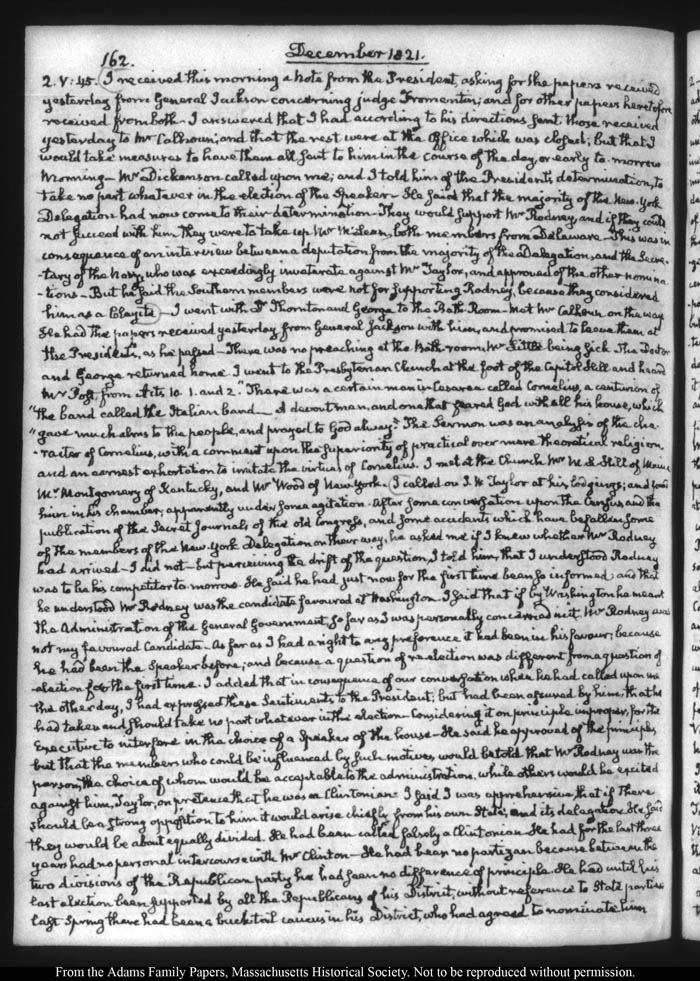 162.
December 1821.
2. V:45. I received this morning a note from the President, asking for the papers received
yesterday from General Jackson concerning judge Fromentin; and for other papers heretofore
received from both. I answered that I had according to his directions sent those received
yesterday to Mr Calhoun; and that the rest were at the Office which was closed; but that I
would take measures to have them all sent to him in the course of the day, or early to-morrow
morning— Mr Dickenson called upon me; and I told him of the President's determination, to
take no part whatever in the election of the Speaker— He said that the majority of the New-York
Delegation had now come to their determination. They would support Mr Rodney, and if they could
not succeed with him, they were to take up Mr McLean, both members from Delaware. This was in
consequence of an interview between a deputation from the majority of the Delegation, and the Secre-
-tary of the Navy, who was exceedingly inveterate against Mr Taylor, and approved of the other nomina
-tions— But he said the Southern members were not for supporting Rodney, because they considered
him as a Clayite. I went with Dr Thornton and George to the Bath Room— Met Mr Calhoun on the way
He had the papers received yesterday from General Jackson with him, and promised to leave them at
the President's, as he passed— There was no preaching at the Bath-room, Mr Little being sick. The Doctor
and George returned home. I went to the Presbyterian Church at the foot of the Capitol Hill and heard
Mr Post, from Acts 10. 1. and 2. "There was a certain man in Cesarea called Cornelius, a centurion of
"the band called the Italian band— A devout man, and one that feared God with all his house, which
"gave much alms to the people, and prayed to God alway." The Sermon was an analysis of the cha
-racter of Cornelius, with a comment upon the superiority of practical over mere theoretical religion,
and an earnest exhortation to imitate the virtues of Cornelius. I met at the Church Mr W. Still of
Mr Montgomery of Kentucky, and Mr Wood of New-York. I called on J. W. Taylor at his lodgings; and found
him in his chamber; apparently under some agitation. After some conversation upon the Census, and the
publication of the Secret Journals of the old Congress, and some accidents which have befallen some
of the members of the New-York Delegation on their way, he asked me if I knew whether Mr Rodney
had arrived— I did not— but perceiving the drift of the question, I told him, that I understood Rodney
was to be his competitor to-morrow. He said he had just now for the first time been so informed; and that
he understood Mr Rodney was the candidate favoured at Washington. I said that if by Washington he meant
the Administration of the General Government, so far as I was personally concerned in it Mr Rodney was
not my favoured Candidate— As far as I had a right to any preference it had been in his favour; because
he had been the Speaker before; and because a question of re-election was different from a question of
-election for the first time. I added that in consequence of our conversation when he had called upon me
the other day, I had expressed these Sentiments to the President; but had been assured by him, that he
had taken and should take no part whatever in the election. Considering it on principle improper, for the
Executive to interfere in the choice of a Speaker of the house— He said he approved of the principles,
but that the members who could be influenced by such motives, would be told that Mr Rodney was the
person, the choice of whom would be acceptable to the administration, while others would be excited
against him, Taylor, on pretence that he was a Clintonian. I said I was apprehensive that if there
should be a strong opposition to him it would arise chiefly from his own State, and its delegation. He said
they would be about equally divided. He had been called falsely a Clintonian— He had for the last three
years had no personal intercourse with Mr Clinton— He had been no partizan because between the
two divisions of the Republican party he had seen no difference of principle. He had until his
last election been supported by all the Republicans of his District, without reference to State parties
last Spring there had been a bucktail caucus in his District, who had agreed to nominate him
From the Adams Family Papers, Massachusetts Historical Society. Not to be reproduced without permission.